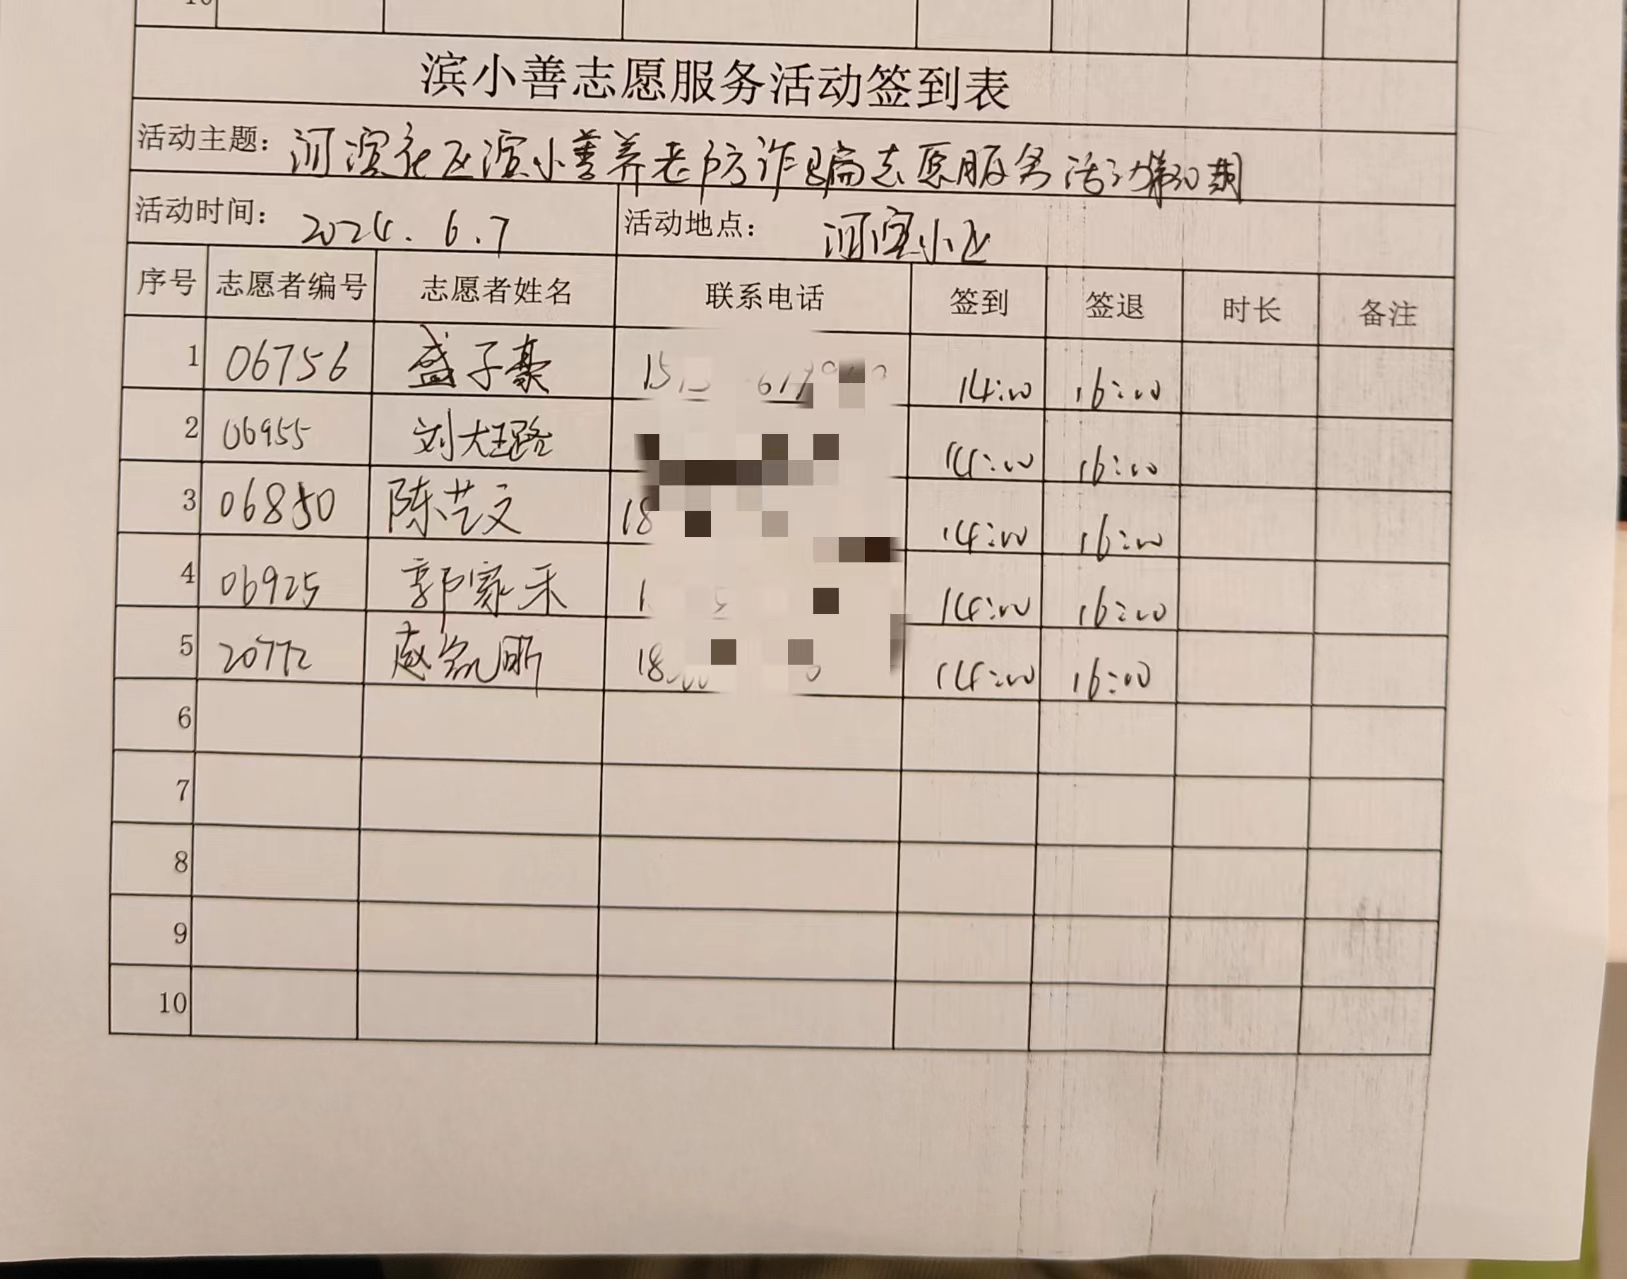 滨小善志愿服务活动签到表
活动主题：河滨社区滨小善养老防诈骗志愿服务活动第30期
活动时间：2024.6.7 活动地点：河滨小区
序号 志愿者编号 志愿者姓名 联系电话 签到 签退 时长 备注
1 06756 盛子豪 14:00 16:00
2 06955 14:00 16:00
3 06850 陈艺文 18 14:00 16:00
4 06925 郭家禾 14:00 16:00
5 20772 14:00 16:00
6
7
8
9
10